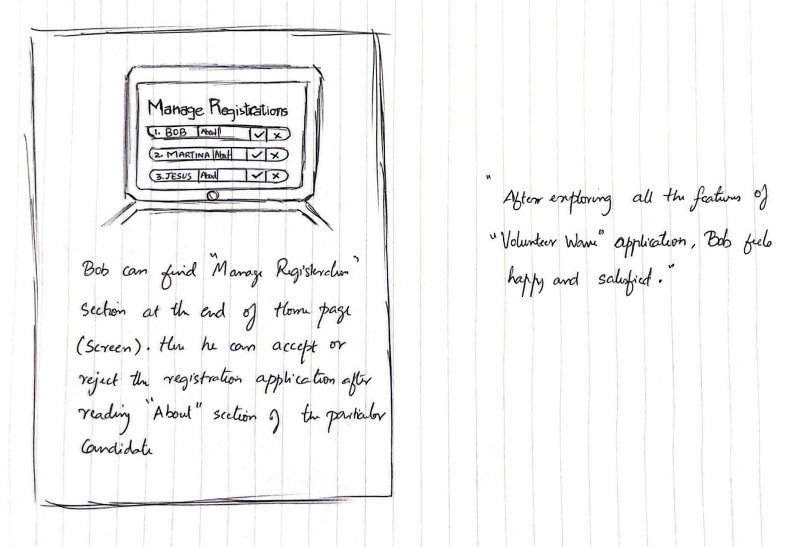 Manage Registrations
1. BOB About ✓ ×
2. MARTINA About ✓ ×
3. JESUS About ✓ ×
Bob can find "Manage Registration"
Section at the end of Home page
(Screen). Here he can accept or
reject the registration application after
reading "About" section of the particular
Candidate
"After exploring all the features of
"Volunteer Wave" application, Bob feels
happy and satisfied."